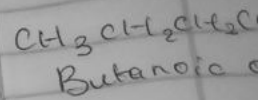 CH3 CH2CH2C
Butanoic